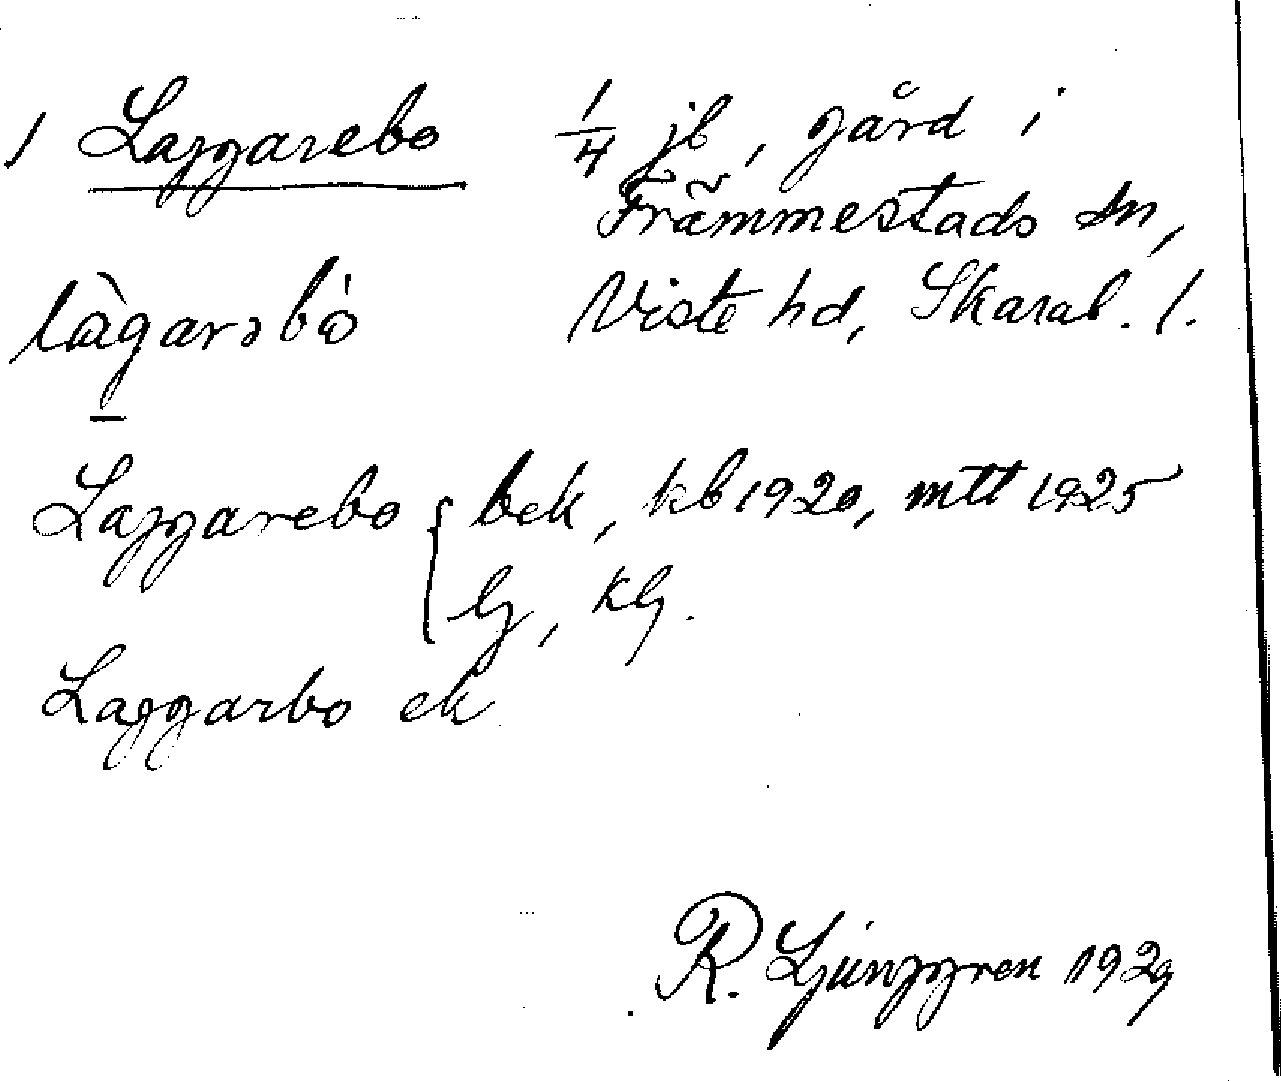 1 Laggarebo 1/4 jb, gård i
Främmestads sn,
làgarəbò Viste hd, Skarab. l.
Laggarebo { bek, kb 1920, mtt 1925
lj, klj.
Laggarbo ek
R. Ljunggren 1929